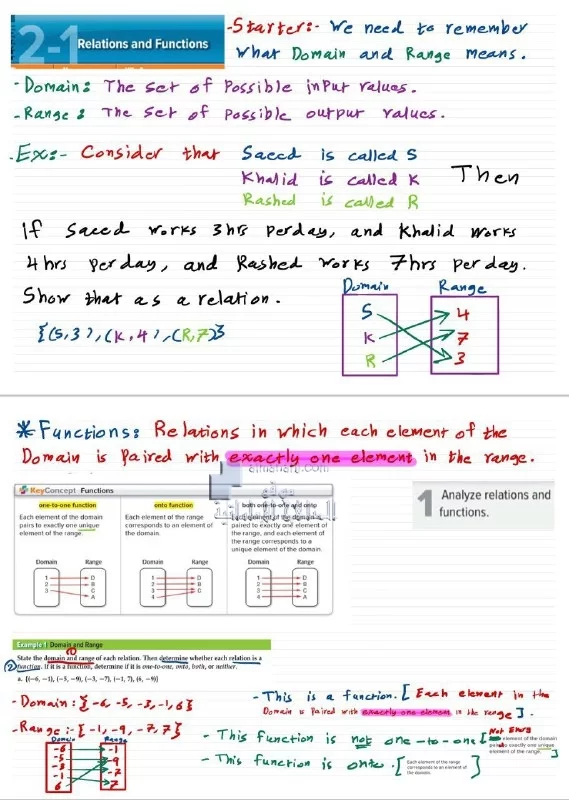 2-1 Relations and Functions
-Starter:- We need to remember
what Domain and Range means.
-Domain: The set of Possible input values.
-Range: The set of possible output values.
-Ex:- Consider that Saeed is called S
Khalid is called K Then
Rashed is called R
If Saeed works 3hrs perday, and Khalid works
4hrs per day, and Rashed works 7hrs per day.
Show that as a relation.
Domain Range
S 4
K 7
R 3
{(S,3),(K,4),(R,7)}
*Functions: Relations in which each element of the
Domain is Paired with exactly one element in the range.
KeyConcept Functions
one-to-one function
Each element of the domain
pairs to exactly one unique
element of the range.
Domain Range
1 D
2 B
3 C
A
onto function
Each element of the range
corresponds to an element of
the domain.
Domain Range
1 D
2 B
3 C
4
both one-to-one and onto
Each element of the domain is
paired to exactly one element of
the range, and each element of
the range corresponds to a
unique element of the domain.
Domain Range
1 D
2 B
3 C
4 A
1 Analyze relations and
functions.
Example 1 Domain and Range
①
State the domain and range of each relation. Then determine whether each relation is a
② function. If it is a function, determine if it is one-to-one, onto, both, or neither.
a. {(−6, −1), (−5, −9), (−3, −7), (−1, 7), (6, −9)}
-Domain:{-6, -5, -3, -1, 6}
-Range:-{-1, -9, -7, 7}
Domain Range
-6 -1
-5 -9
-3 -7
-1 7
6
-This is a function. [Each element in the
Domain is Paired with exactly one element in the range].
-This function is not one-to-one [Not Every
element of the domain
pairs to exactly one unique
element of the range.]
-This function is onto. [Each element of the range
corresponds to an element of
the domain.]